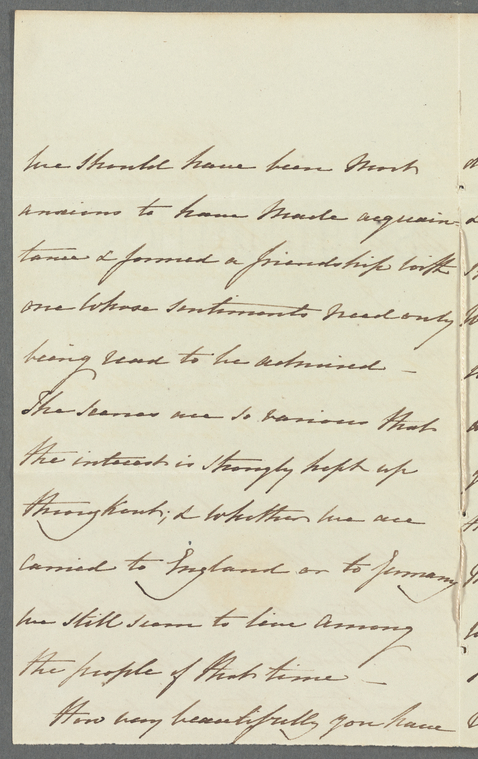 We should have been most
anxious to have made acquain=
tance & formed a friendship with
one whose sentiments need only
being read to be admired —
The scenes are so various that
the interest is strongly kept up
throughout; & whether we are
carried to England or to Germany
we still seem to live among
the people of that time —
How very beautifully you have